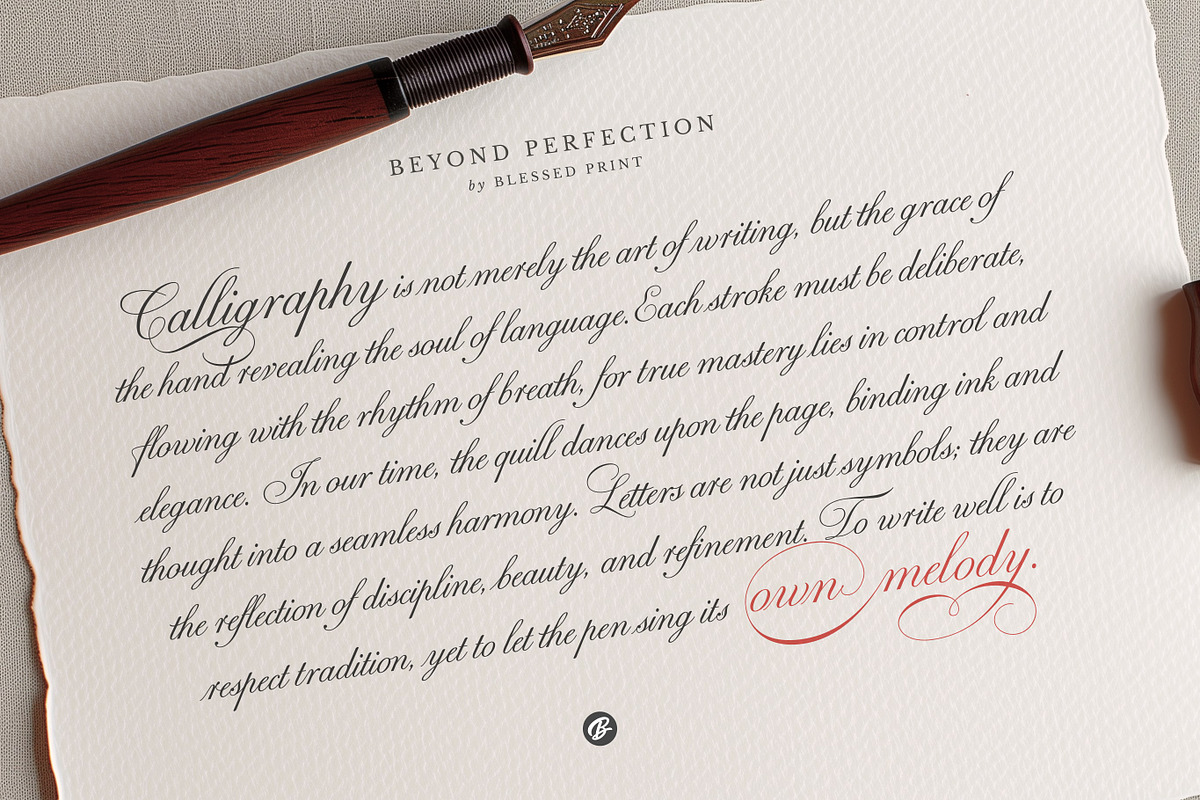 BEYOND PERFECTION
by BLESSED PRINT
Calligraphy is not merely the art of writing, but the grace of
the hand revealing the soul of language. Each stroke must be deliberate,
flowing with the rhythm of breath, for true mastery lies in control and
elegance. In our time, the quill dances upon the page, binding ink and
thought into a seamless harmony. Letters are not just symbols; they are
the reflection of discipline, beauty, and refinement. To write well is to
respect tradition, yet to let the pen sing its own melody.
B